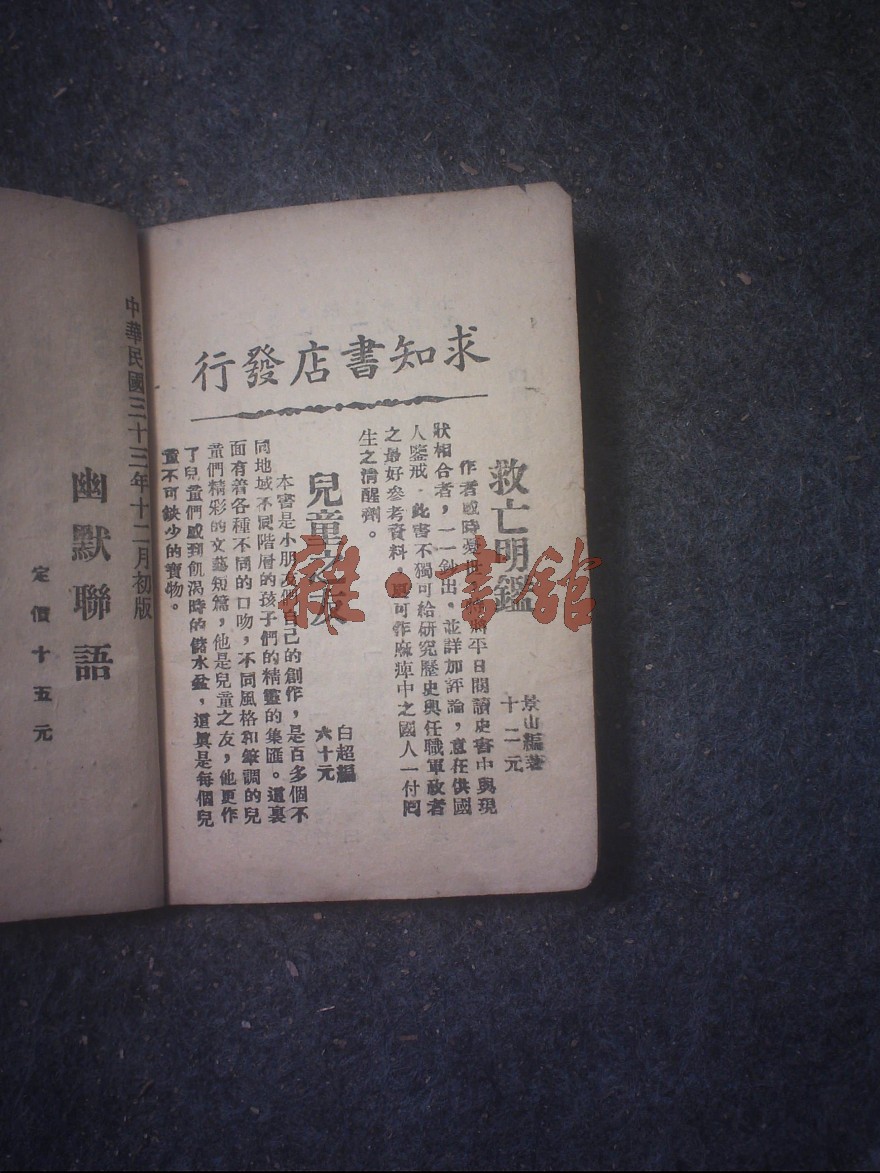 求知書店發行
救亡明鑑
景山編著
十二元
作者感時憂世，將平日閱讀史書中與現
狀相合者，一一鈔出，並詳加評論，意在供國
人鑒戒．此書不獨可給研究歷史與任職軍政者
之最好參考資料，可作麻痺中之國人一付
生之清醒劑。
兒童之友
白超編
六十元
本書是小朋友們自己的創作，是百多個不
同地域不同階層的孩子們的精靈的集匯。這裏
面有着各種不同的口吻，不同風格和筆調的兒
童們精彩的文藝短篇，他是兒童之友，他更作
了兒童們感到飢渴時的儲水盆，這眞是每個兒
童不可缺少的寶物。
中華民國三十三年十二月初版
幽默聯語
定價十五元
雜·書館